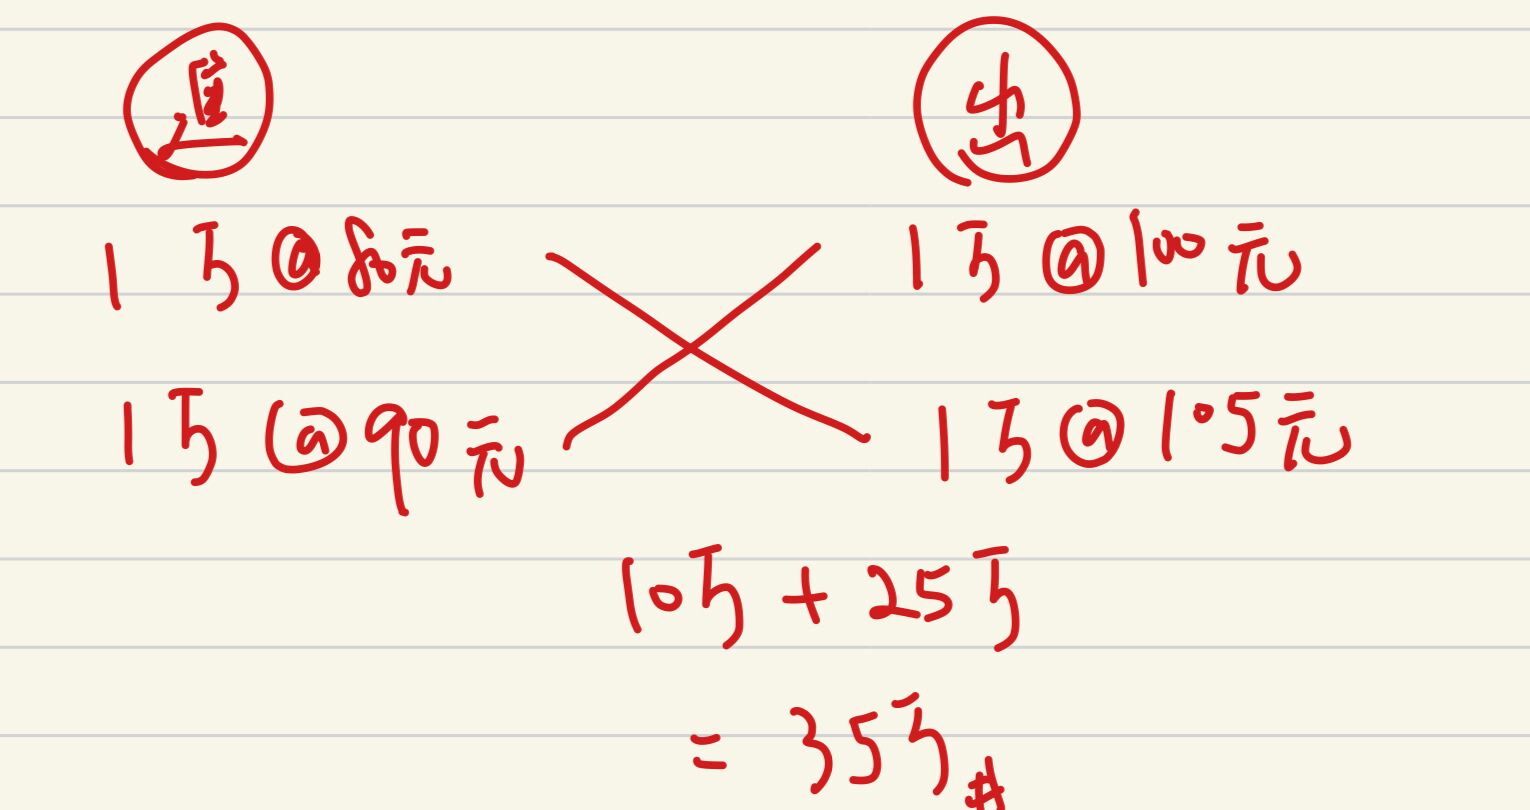 進 出
1万@80元 1万@100元
1万@90元 1万@105元
10万+25万
=35万#